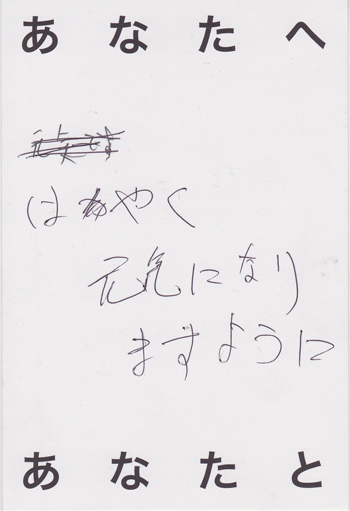 あなたへ
はやく
元気になり
ますように
あなたと